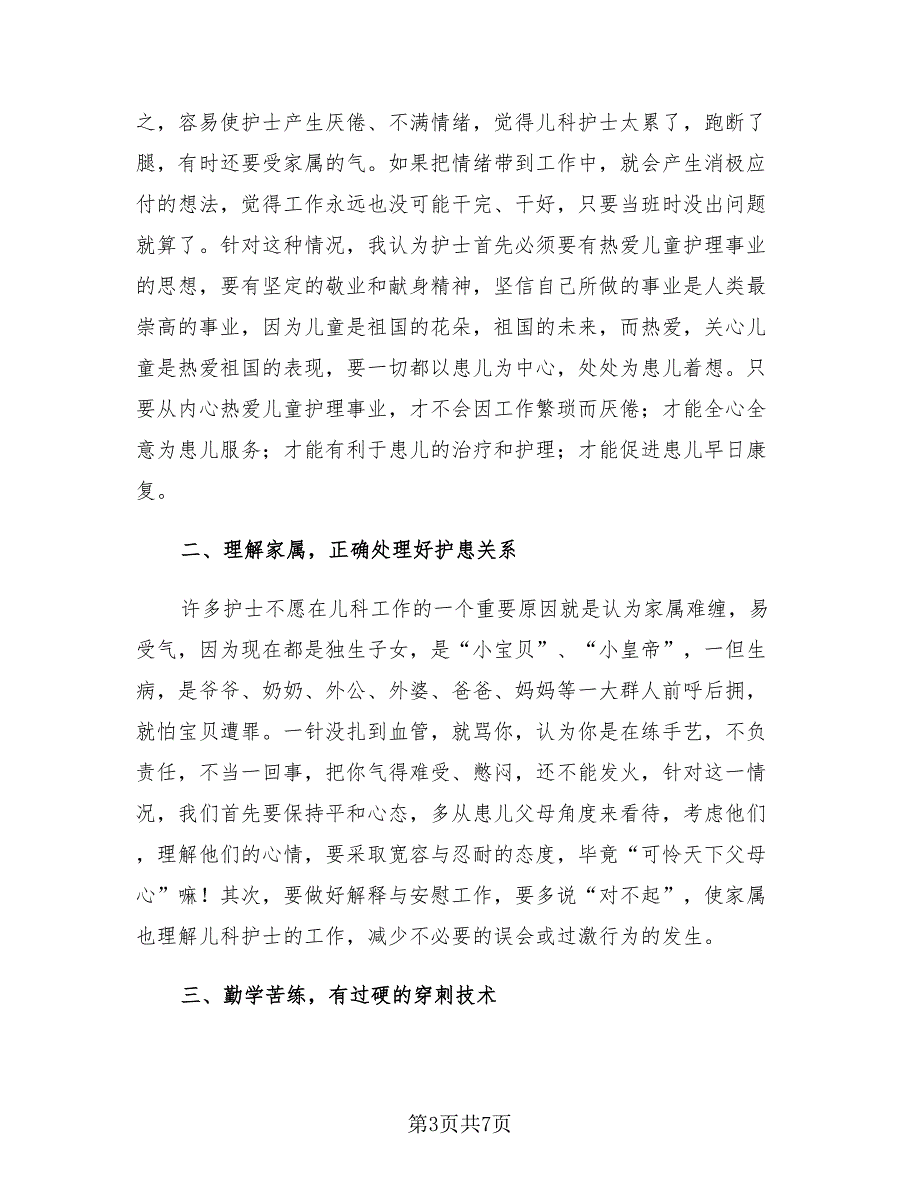 之，容易使护士产生厌倦、不满情绪，觉得儿科护士太累了，跑断了
腿，有时还要受家属的气。如果把情绪带到工作中，就会产生消极应
付的想法，觉得工作永远也没可能干完、干好，只要当班时没出问题
就算了。针对这种情况，我认为护士首先必须要有热爱儿童护理事业
的思想，要有坚定的敬业和献身精神，坚信自己所做的事业是人类最
崇高的事业，因为儿童是祖国的花朵，祖国的未来，而热爱，关心儿
童是热爱祖国的表现，要一切都以患儿为中心，处处为患儿着想。只
要从内心热爱儿童护理事业，才不会因工作繁琐而厌倦；才能全心全
意为患儿服务；才能有利于患儿的治疗和护理；才能促进患儿早日康
复。
二、理解家属，正确处理好护患关系
许多护士不愿在儿科工作的一个重要原因就是认为家属难缠，易
受气，因为现在都是独生子女，是“小宝贝”、“小皇帝”，一但生
病，是爷爷、奶奶、外公、外婆、爸爸、妈妈等一大群人前呼后拥，
就怕宝贝遭罪。一针没扎到血管，就骂你，认为你是在练手艺，不负
责任，不当一回事，把你气得难受、憋闷，还不能发火，针对这一情
况，我们首先要保持平和心态，多从患儿父母角度来看待，考虑他们
，理解他们的心情，要采取宽容与忍耐的态度，毕竟“可怜天下父母
心”嘛！其次，要做好解释与安慰工作，要多说“对不起”，使家属
也理解儿科护士的工作，减少不必要的误会或过激行为的发生。
三、勤学苦练，有过硬的穿刺技术
第3页共7页